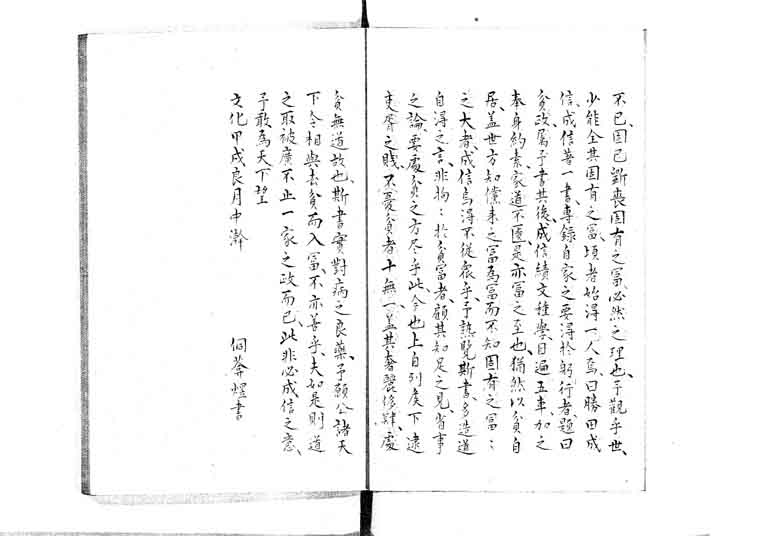 不已固已斲喪固有之冨必然之理也予觀乎世、
少能全其固有之冨、頃者始得一人焉曰勝田成
信、成信著一書、專錄自家之要得於躬行者、題曰
貧政、属予書其後、成信績文種學、目過五車、加之
奉身約素家道不匱、是亦冨之至也、猶然以貧自
居、蓋世方知儻来之冨為冨而不知固有之冨〻
之大者、成信烏得不從衆乎、予熟覽斯書、多造道
自得之言、非拘〻於貧冨者、顧其知足之見、省事
之論、要處貧之方尽乎此、今也上自列矦下逮
吏胥之賤、不憂貧者十無一、蓋其奢麗侈肆、處
貧無道故也、斯書實對病之良藥、予願公諸天
下、令相與去貧而入冨、不亦善乎、夫如是則道
之取被廣不止一家之政而已、此非必成信之意、
予敢為天下望
文化甲戌良月中澣
侗菴煜書